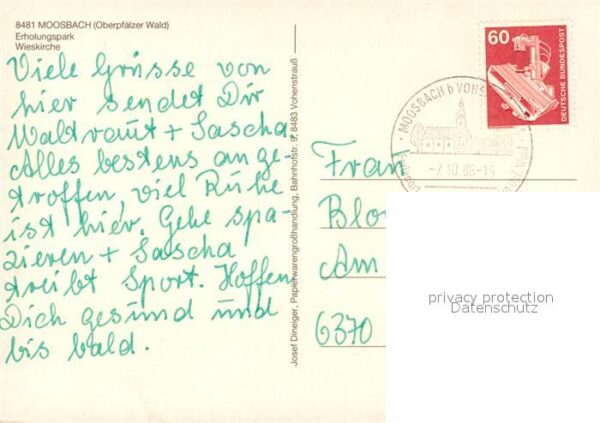 8481 MOOSBACH (Oberpfälzer Wald)
Erholungspark
Wieskirche
Viele Grüsse von
hier sendet Dir
Waltraut + Sascha
Alles bestens ange-
troffen, viel Ruhe
ist hier. Gehe spa-
zieren + Sascha
treibt Sport. Hoffen
Dich gesund und
bis bald.
Josef Dineiger, Papierwarengroßhandlung, Bahnhofstr. 7, 8483 Vohenstrauß
60
DEUTSCHE BUNDESPOST
MOOSBACH b VOHEN
-7.10.86-16
Frau
Blo
Am
6370
privacy protection
Datenschutz